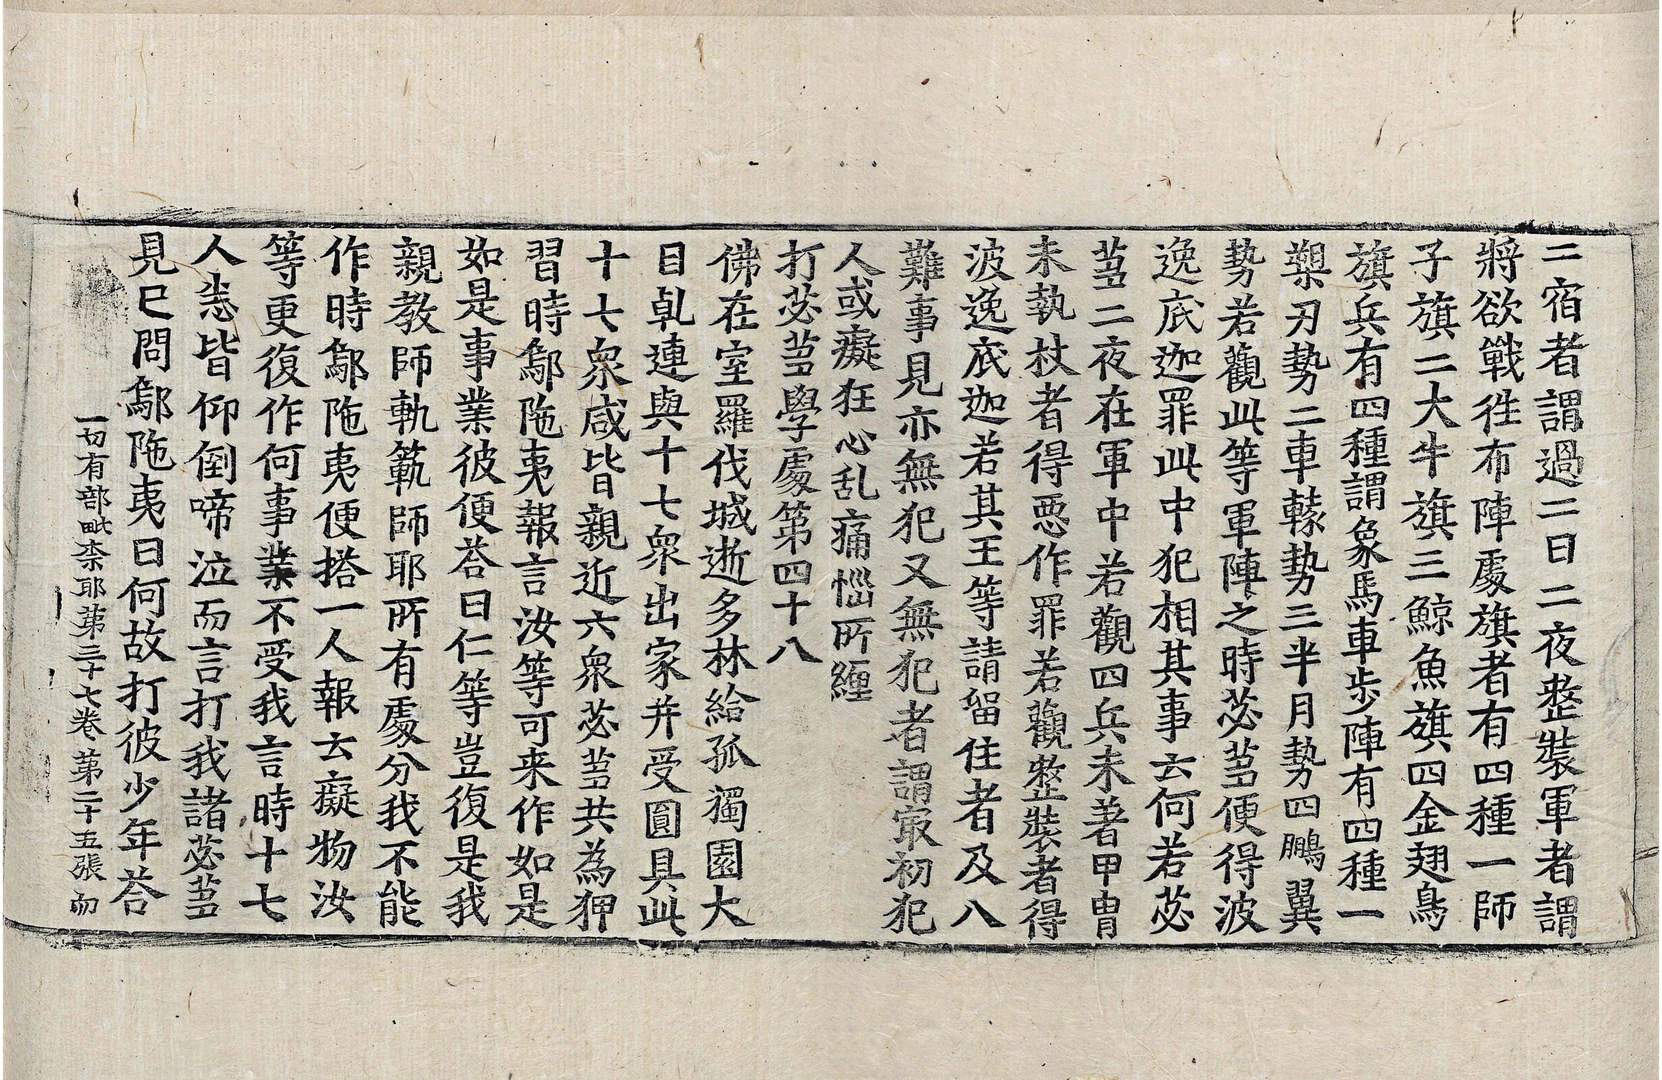 二宿者謂過二日二夜整裝軍者謂
將欲戰徃布陣處旗者有四種一師
子旗二大牛旗三鯨魚旗四金翅鳥
旗兵有四種謂象馬車步陣有四種一
槊刃勢二車轅勢三半月勢四鵬翼
勢若觀此等軍陣之時苾芻便得波
逸底迦罪此中犯相其事云何若苾
芻二夜在軍中若觀四兵未著甲胄
未執杖者得惡作罪若觀整裝者得
波逸底迦若其王等請留住者及八
難事見亦無犯又無犯者謂㝡初犯
人或癡狂心乱痛惱所纏
打苾芻學處第四十八
佛在室羅伐城逝多林給孤獨園大
目乹連與十七衆出家并受圓具此
十七衆咸皆親近六衆苾芻共為狎
習時鄔陁夷報言汝等可来作如是
如是事業彼便荅曰仁等豈復是我
親教師軌範師耶所有處分我不能
作時鄔陁夷便搭一人報云癡物汝
等更復作何事業不受我言時十七
人悉皆仰倒啼泣而言打我諸苾芻
見已問鄔陁夷曰何故打彼少年荅
一切有部毗柰耶第三十七卷 第二十五張 而